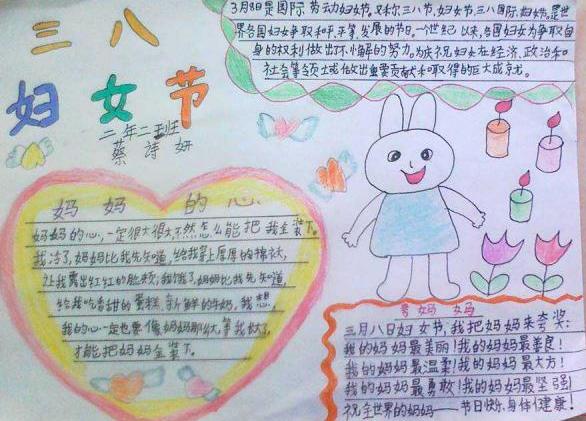 三八
妇女节
二年二班
蔡诗妍
3月8日是国际劳动妇女节,又称三八节,妇女节,三八国际妇女节。是世
界各国妇女争取和平、平等、发展的节日。一世纪以来,各国妇女为争取自
身的权利做出了不懈的努力。为庆祝妇女在经济、政治和
社会等领域做出重要贡献和取得的巨大成就。
妈妈的心
妈妈的心,一定很大很大,不然怎么能把我全装下。
我冷了,妈妈比我先知道,给我穿上厚厚的棉衣,
让我露出红红的脸颊;我饿了,妈妈比我先知道,
给我吃香甜的蛋糕、新鲜的牛奶,我想,
我的心一定也要像妈妈那么大,等我大了,
才能把妈妈全装下。
夸妈妈
三月八日妇女节,我把妈妈来夸奖:
我的妈妈最美丽!我的妈妈最善良!
我的妈妈最温柔!我的妈妈最大方!
我的妈妈最勇敢!我的妈妈最坚强!
祝全世界的妈妈——节日快乐,身体健康!